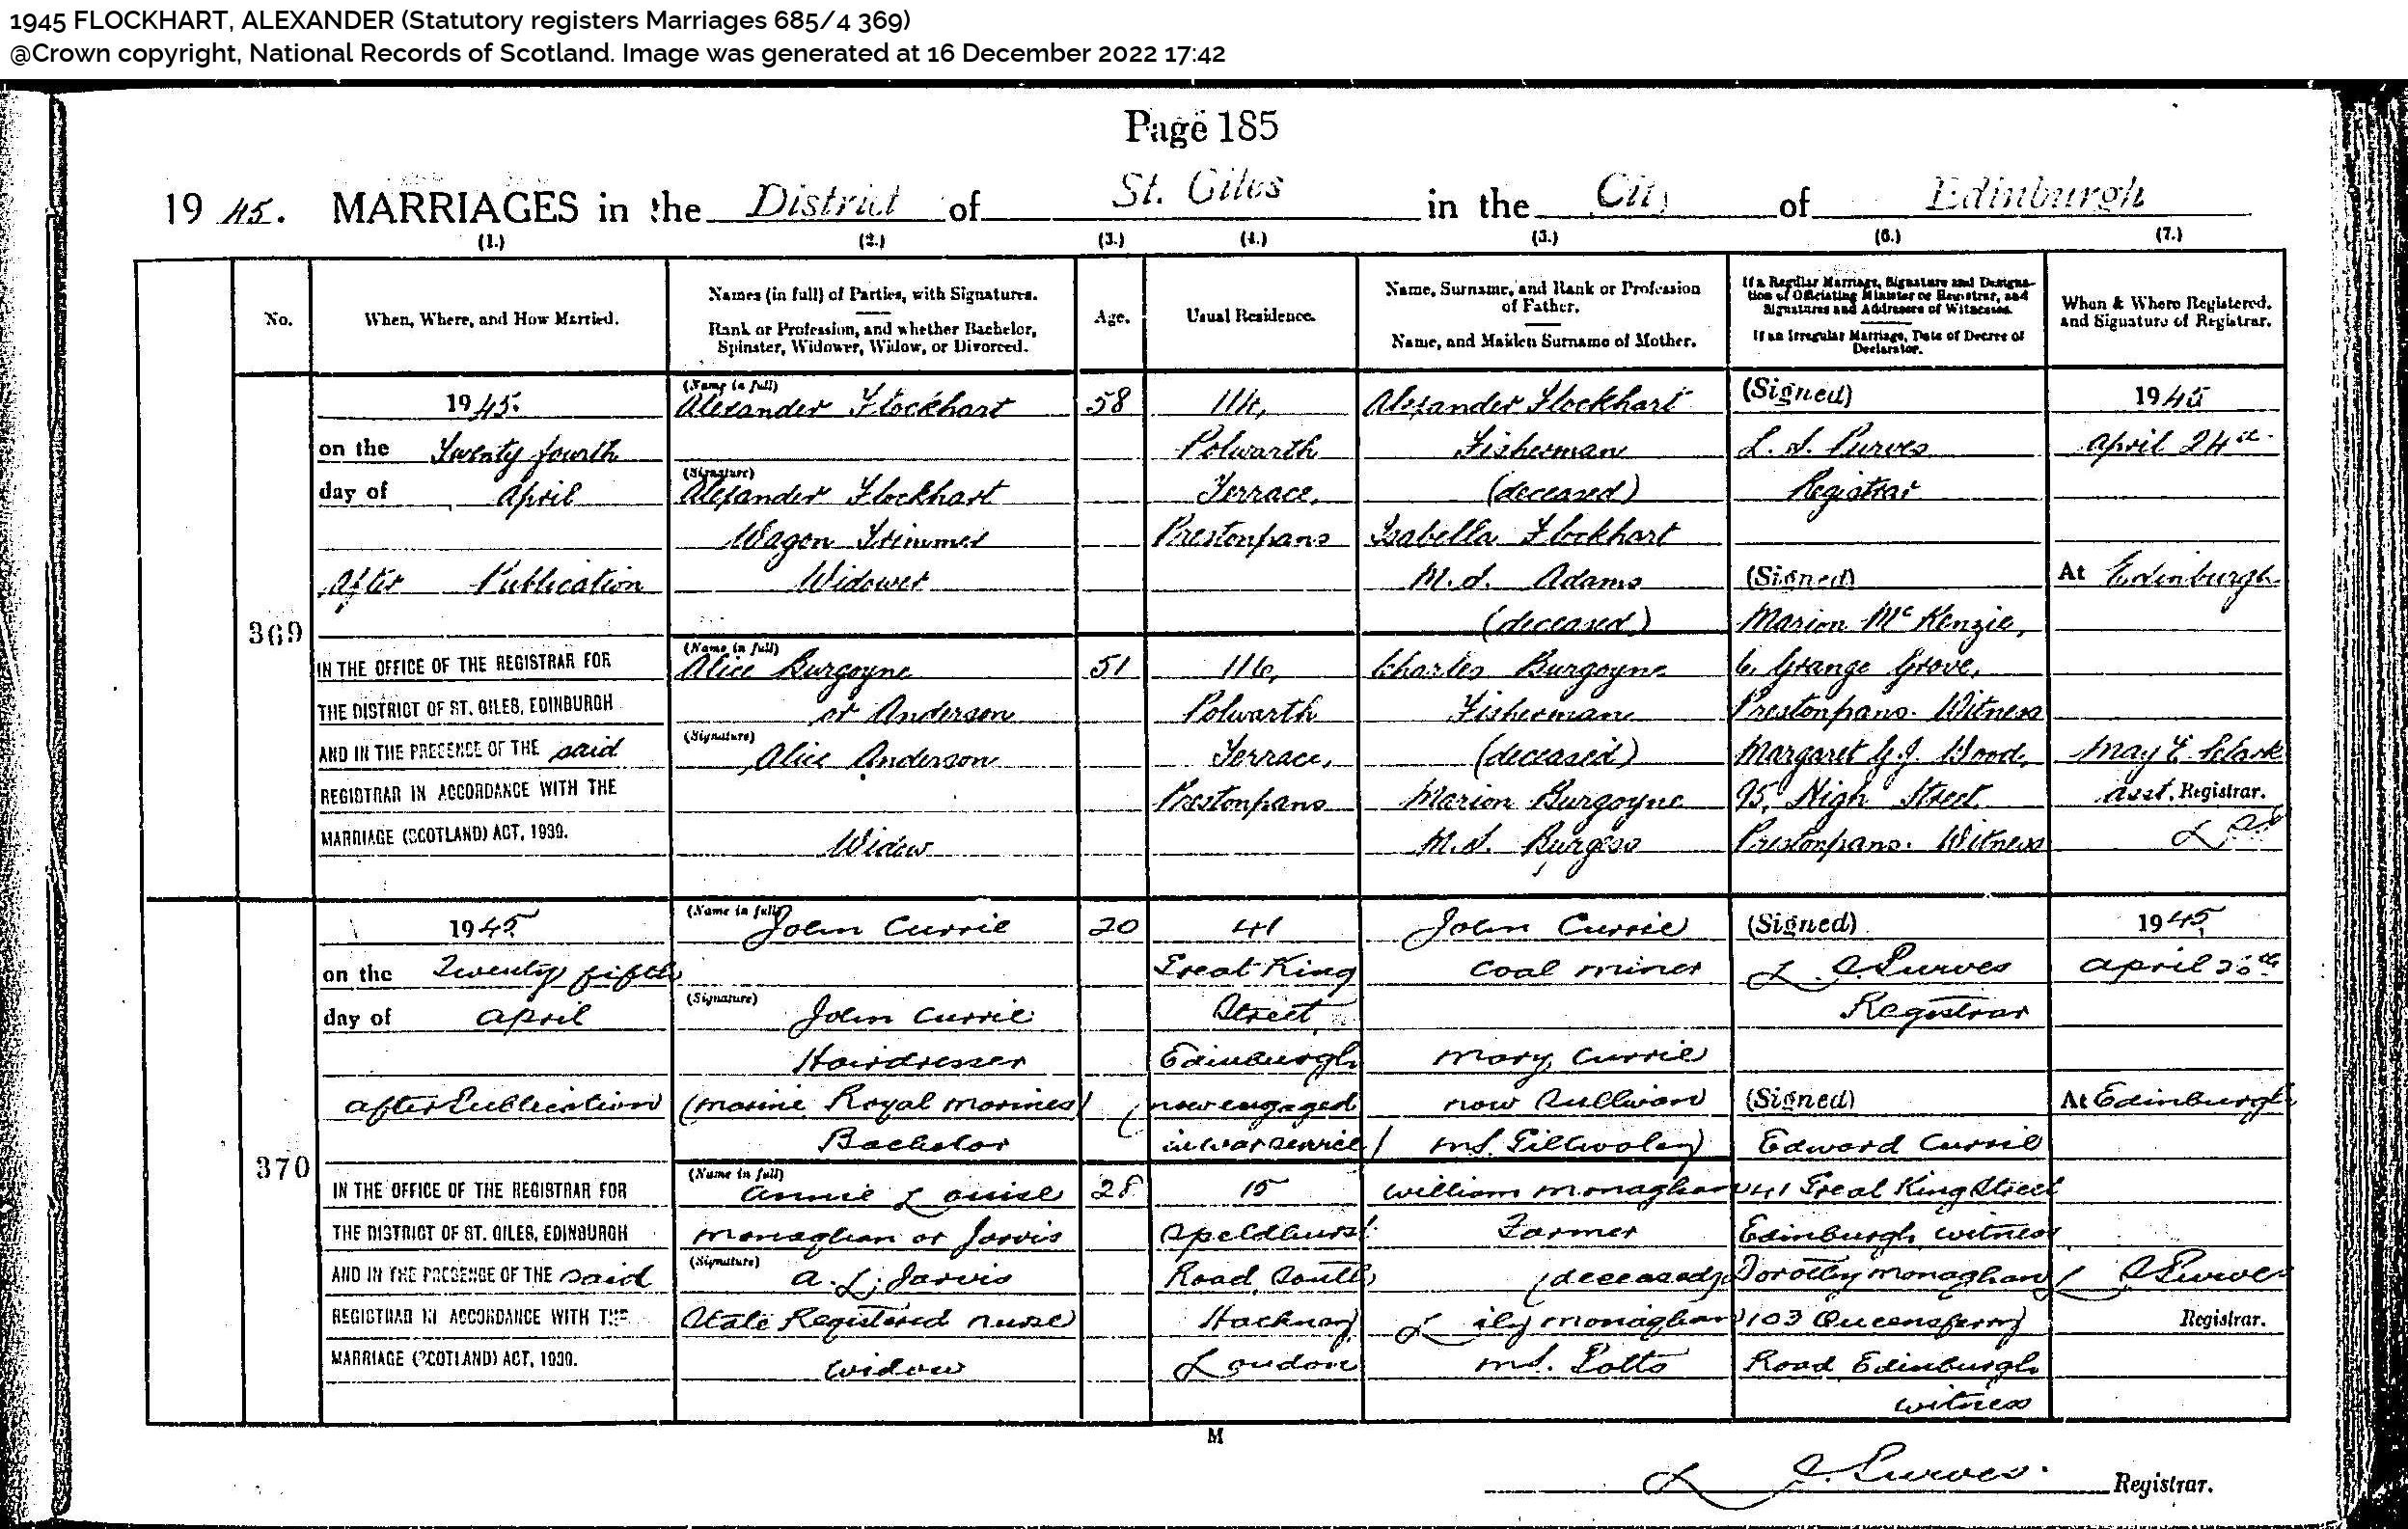 1945 FLOCKHART, ALEXANDER (Statutory registers Marriages 685/4 369)
@Crown copyright, National Records of Scotland. Image was generated at 16 December 2022 17:42
Page 185
1945. MARRIAGES in the District of St. Giles in the City of Edinburgh
(1.) (2.) (3.) (4.) (5.) (6.) (7.)
No.
When, Where, and How Married.
Names (in full) of Parties, with Signatures.
Rank or Profession, and whether Bachelor,
Spinster, Widower, Widow, or Divorced.
Age.
Usual Residence.
Name, Surname, and Rank or Profession
of Father.
Name, and Maiden Surname of Mother.
If a Regular Marriage, Signature and Designa-
tion of Officiating Minister or Registrar, and
Signatures and Addresses of Witnesses.
If an Irregular Marriage, Date of Decree of
Declarator.
When & Where Registered,
and Signature of Registrar.
369
1945.
on the Twenty fourth
day of April
After Publication
IN THE OFFICE OF THE REGISTRAR FOR
THE DISTRICT OF ST. GILES, EDINBURGH
AND IN THE PRESENCE OF THE said
REGISTRAR IN ACCORDANCE WITH THE
MARRIAGE (SCOTLAND) ACT, 1939.
(Name in full)
Alexander Flockhart
(Signature)
Alexander Flockhart
Wagon Trimmer
Widower
(Name in full)
Alice Burgoyne
or Anderson
(Signature)
Alice Anderson
Widow
58
51
Polwarth
Terrace,
Prestonpans
116,
Polwarth
Terrace,
Prestonpans
Alexander Flockhart
Fisherman
(deceased)
Isabella Flockhart
M.S. Adams
(deceased)
Charles Burgoyne
Fisherman
(deceased)
Marion Burgoyne
M.S. Burgess
(Signed)
L. S. Purves
Registrar
(Signed)
Marion McKenzie,
6, Grange Grove,
Prestonpans. Witness
Margaret Wood,
95, High Street
Prestonpans. Witness
1945
April 24th
At Edinburgh
May E. Clark
Asst. Registrar.
370
1945
on the Twenty fifth
day of April
after Publication
IN THE OFFICE OF THE REGISTRAR FOR
THE DISTRICT OF ST. GILES, EDINBURGH
AND IN THE PRESENCE OF THE said
REGISTRAR IN ACCORDANCE WITH THE
MARRIAGE (SCOTLAND) ACT, 1939.
(Name in full)
John Currie
(Signature)
John Currie
Hairdresser
(Marine Royal Marines)
Bachelor
(Name in full)
Annie Louise
Monaghan or Jarvis
(Signature)
A. L. Jarvis
State Registered nurse
widow
20
28
41
Great King
Street
Edinburgh
(now engaged
in war service)
15
Speldhurst
Road, South
Hackney
London
John Currie
Coal miner
Mary Currie
now Sullivan
m.s. Gilhooley
William Monaghan
Farmer
(deceased)
Lily Monaghan
m.s. Potts
(Signed)
L S Purves
Registrar
(Signed)
Edward Currie
41 Great King Street
Edinburgh witness
Dorothy Monaghan
103 Queensferry
Road Edinburgh
witness
1945
April
At Edinburgh
L S Purves
Registrar.
M
L S. Purves. Registrar.